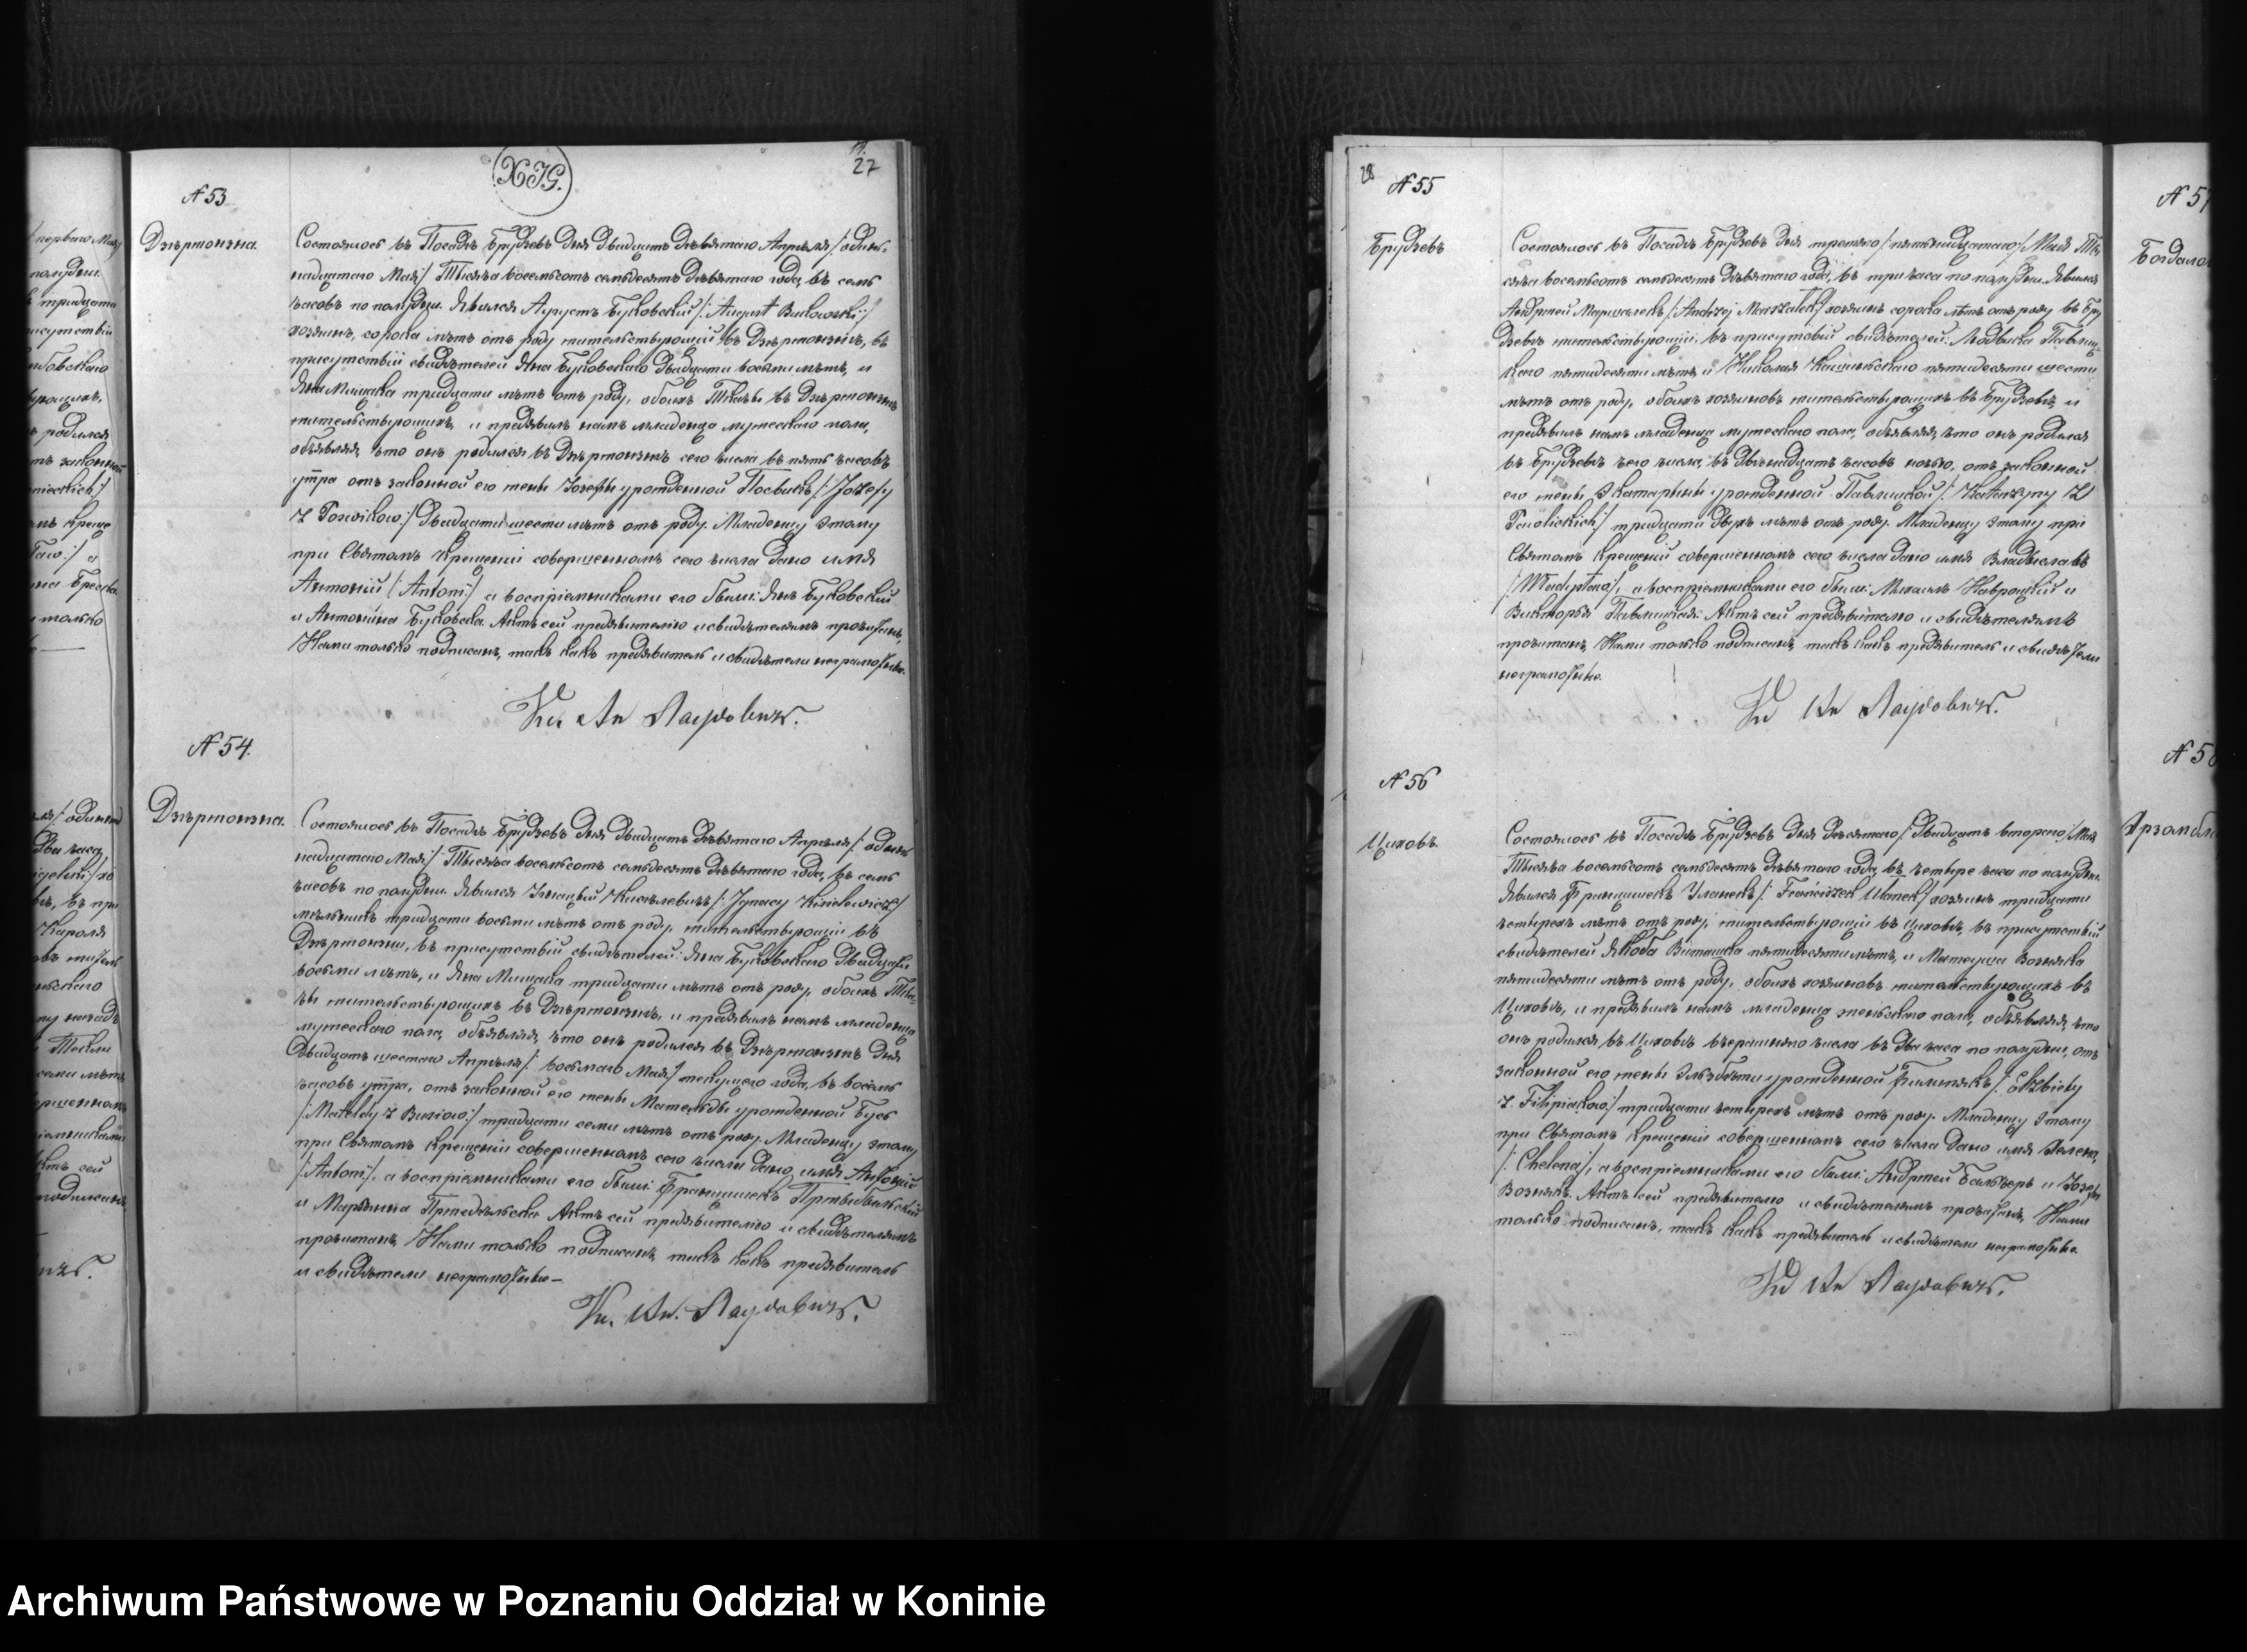 14.
27
XIG.
N 53
Дзѣртонзна.
Состоялось въ Посадѣ Брудзевъ дня двадцать девятаго Апрѣля /: один-
надцатаго Мая:/ Тысяча восемьсотъ семьдесятъ девятаго года, въ семь
часовъ по полудни. Явился Августъ Буковскій /: August Bukowski :/
хозяинъ, сорока лѣтъ отъ роду жительствующій въ Дзѣртонзнѣ, въ
присутствіи свидѣтелей Яна Буковскаго двадцати восьми лѣтъ, и
Яна Мищака тридцати лѣтъ отъ роду, обоихъ въ Дзѣртонзнѣ
жительствующихъ, и предъявилъ намъ младенца мужескаго пола,
объявляя, что онъ родился въ Дзѣртонзнѣ сего числа въ пять часовъ
утра отъ законной его жены Юзефы урожденной /: Józefy
z :/ двадцати шести лѣтъ отъ роду. Младенцу этому
при Святомъ Крещеніи совершенномъ сего числа дано имя
Антоній /: Antoni :/ а воспріемниками его были: Янъ Буковскій
и Антонина Буковска. Актъ сей предъявителю и свидѣтелямъ прочитанъ,
Нами только подписанъ, такъ какъ предъявитель и свидѣтели неграмотны.
N 54.
Дзѣртонзна.
Состоялось въ Посадѣ Брудзевъ дня двадцать девятаго Апрѣля /: один-
надцатаго Мая:/ Тысяча восемьсотъ семьдесятъ девятаго года, въ семь
часовъ по полудни. Явился Игнацый Киселевичъ /: Ignacy Kisielewicz :/
мѣльникъ тридцати восьми лѣтъ отъ роду, жительствующій въ
Дзѣртонзнѣ, въ присутствіи свидѣтелей: Яна Буковскаго двадцати
восьми лѣтъ, и Яна Мищака тридцати лѣтъ отъ роду, обоихъ
жительствующихъ въ Дзѣртонзнѣ, и предъявилъ намъ младенца
мужескаго пола, объявляя, что онъ родился въ Дзѣртонзнѣ дня
двадцать шестаго Апрѣля /: восьмаго Мая:/ текущего года, въ восемь
часовъ утра, отъ законной его жены Матильды урожденной Бузь
/: Matyldy z :/ тридцати семи лѣтъ отъ роду. Младенцу этому
при Святомъ Крещеніи совершенномъ сего числа дано имя Антоній
/: Antoni :/, а воспріемниками его были: Францишекъ
и Марянна Актъ сей предъявителю и свидѣтелямъ
прочитанъ, Нами только подписанъ, такъ какъ предъявитель
и свидѣтели неграмотны —
28
N 55
Брудзевъ
Состоялось въ Посадѣ Брудзевъ дня третяго /: пятнадцатаго:/ Мая Ты-
сяча восемьсотъ семьдесятъ девятаго года, въ три часа по полудни. Явился
Андржей Маршалекъ /: Andrzej Marszałek :/ хозяинъ сорока лѣтъ отъ роду въ Бру-
дзевѣ жительствующій, въ присутствіи свидѣтелей: Людвика Павлиц-
каго пятидесяти лѣтъ и Николая пятидесяти шести
лѣтъ отъ роду, обоихъ хозяиновъ жительствующихъ въ Брудзевѣ, и
предъявилъ намъ младенца мужескаго пола, объявляя, что онъ родился
въ Брудзевѣ сего числа, въ двѣнадцать часовъ ночью, отъ законной
его жены Катаржины урожденной Павлицкой /: Katarzyny z
Pawlickich :/ тридцати двухъ лѣтъ отъ роду. Младенцу этому при
Святомъ Крещеніи совершенномъ сего числа дано имя Владиславъ
/: Władysław :/, а воспріемниками его были: Михаилъ Навроцкій и
Викторья Павлицкая. Актъ сей предъявителю и свидѣтелямъ
прочитанъ, Нами только подписанъ, такъ какъ предъявитель и свидѣтели
неграмотны.
N 56
Циховъ.
Состоялось въ Посадѣ Брудзевъ дня десятаго /: двадцать втораго:/ Мая
Тысяча восемьсотъ семьдесятъ девятаго года, въ четыре часа по полудни.
Явился Францишекъ Уланекъ /: Franciszek Ulanek :/ хозяинъ тридцати
четырехъ лѣтъ отъ роду, жительствующій въ Циховѣ, въ присутствіи
свидѣтелей Якоба пятидесяти лѣтъ, и Матеуша Возняка
пятидесяти лѣтъ отъ роду, обоихъ хозяиновъ жительствующихъ въ
Циховѣ, и предъявилъ намъ младенца женскаго пола, объявляя, что
онъ родился въ Циховѣ вчерашняго числа въ два часа по полудни, отъ
законной его жены Эльзбѣты урожденной Филипякъ /: Elżbiety
z Filipiaków :/ тридцати четырехъ лѣтъ отъ роду. Младенцу этому
при Святомъ Крещеніи совершенномъ сего числа дано имя Хелена,
/: Chelena :/, а воспріемниками его были: Андржей и Юзефа
Вознякъ. Актъ сей предъявителю и свидѣтелямъ прочитанъ, Нами
только подписанъ, такъ какъ предъявитель и свидѣтели неграмотны.
Archiwum Państwowe w Poznaniu Oddział w Koninie